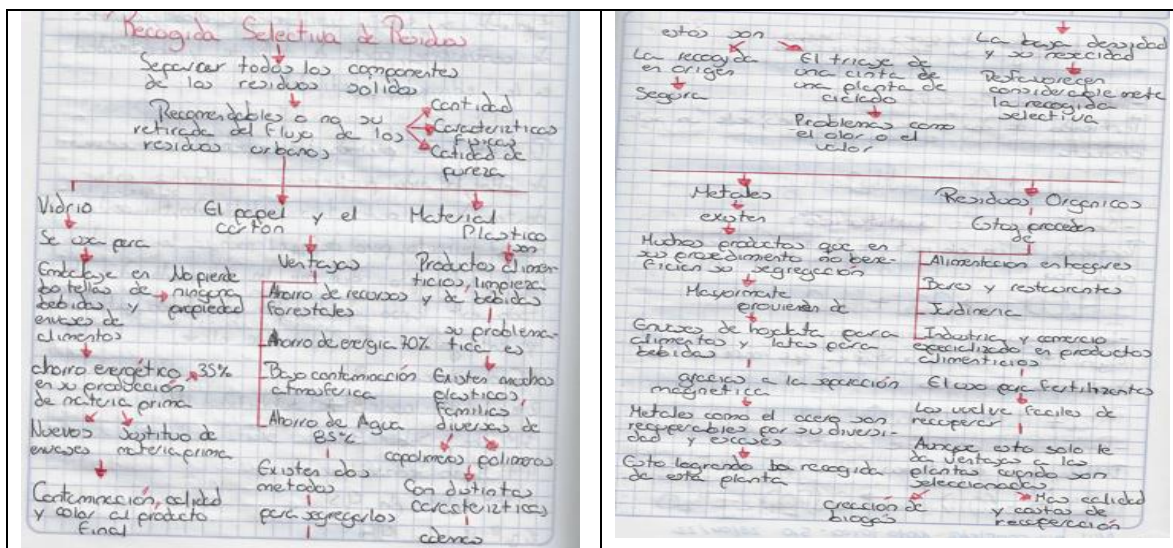 Recogida Selectiva de Residuos
Separar todos los componentes
de los residuos solidos
Recomendables o no su
retirada del flujo de los
residuos urbanos
Cantidad
Caracterizticas
fisicas
Calidad de
pureza
Vidrio
Se usa para
Embalaje en
botellas de
bebidas y
envases de
alimentos
No pierde
ninguna
propiedad
ahorro energético 35%
en su producción
de materia prima
Nuevos
envases
Sustituo de
materia prima
Contaminación, calidad
y color al producto
Final
El papel y el
carton
Ventajas
Ahorro de recursos
forestales
Ahorro de energia 70%
Bajo contaminación
atmosferica
Ahorro de Agua
85%
Existen dos
metodos
para segregarlos
Material
Plastico
son
Productos alimen-
ticios, limpieza
y de bebidas
su problema-
tica es
Existen muchos
plasticos,
familias
diversas de
copolimeros polimeros
Con distintas
caracterizticas
ademas
estos son
La recogida
en origen
Segura
El triaje de
una cinta de
una planta de
ciclado
Problemas como
el olor o el
valor
La baja densidad
y su necidad
Desfavorecen
considerable mete
la recogida
selectiva
Metales
existen
Muchos productos que en
su procedimiento no bene-
ficien su segregación
Mayormate
provienen de
Envases de hojalata para
alimentos y latas para
bebidas
gracias a la separación
magnetica
Metales como el acero son
recuperables por su diversi-
dad y escases
Esto logrando la recogida
de esta planta
Residuos Organicos
Estos proceden
de
Alimentacion en hogares
Bares y restaurentes
Jardineria
Industria y comercio
especializado en productos
alimenticios
El uso para fertilizantes
Los vuelve faciles de
recuperar
Aunque esto solo le
da ventajas a las
plantas cuando son
seleccionadas
creación de
biogas
Mas calidad
y costos de
recuperación